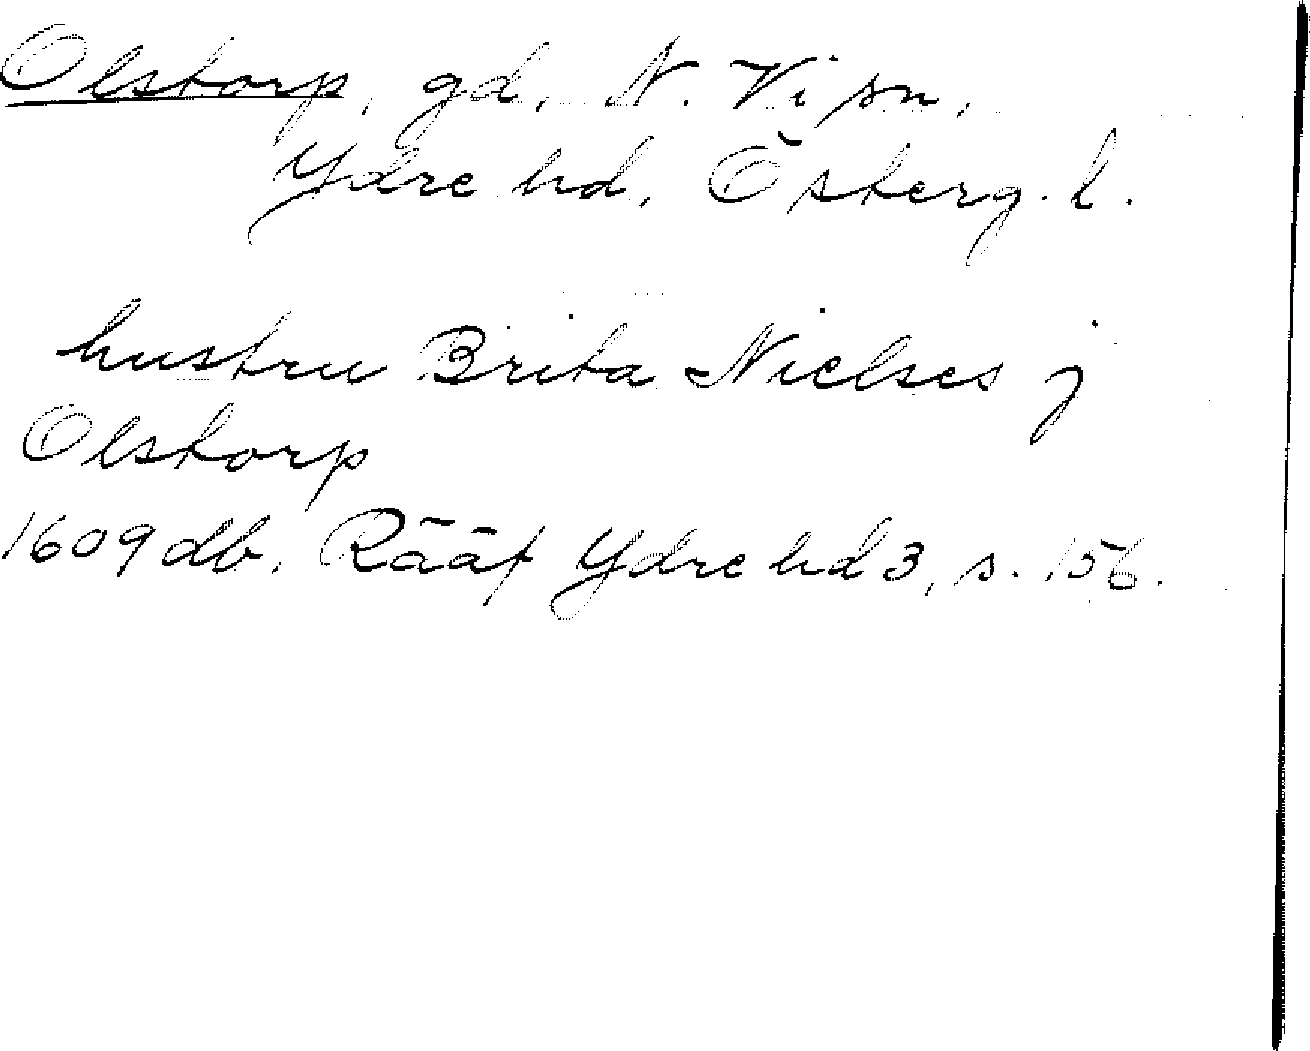 Olstorp, gd, N. Vi sn,
Ydre hd, Österg. l.
hustru Brita Nielses j
Olstorp
1609 db. Rääf Ydre hd 3, s. 156.